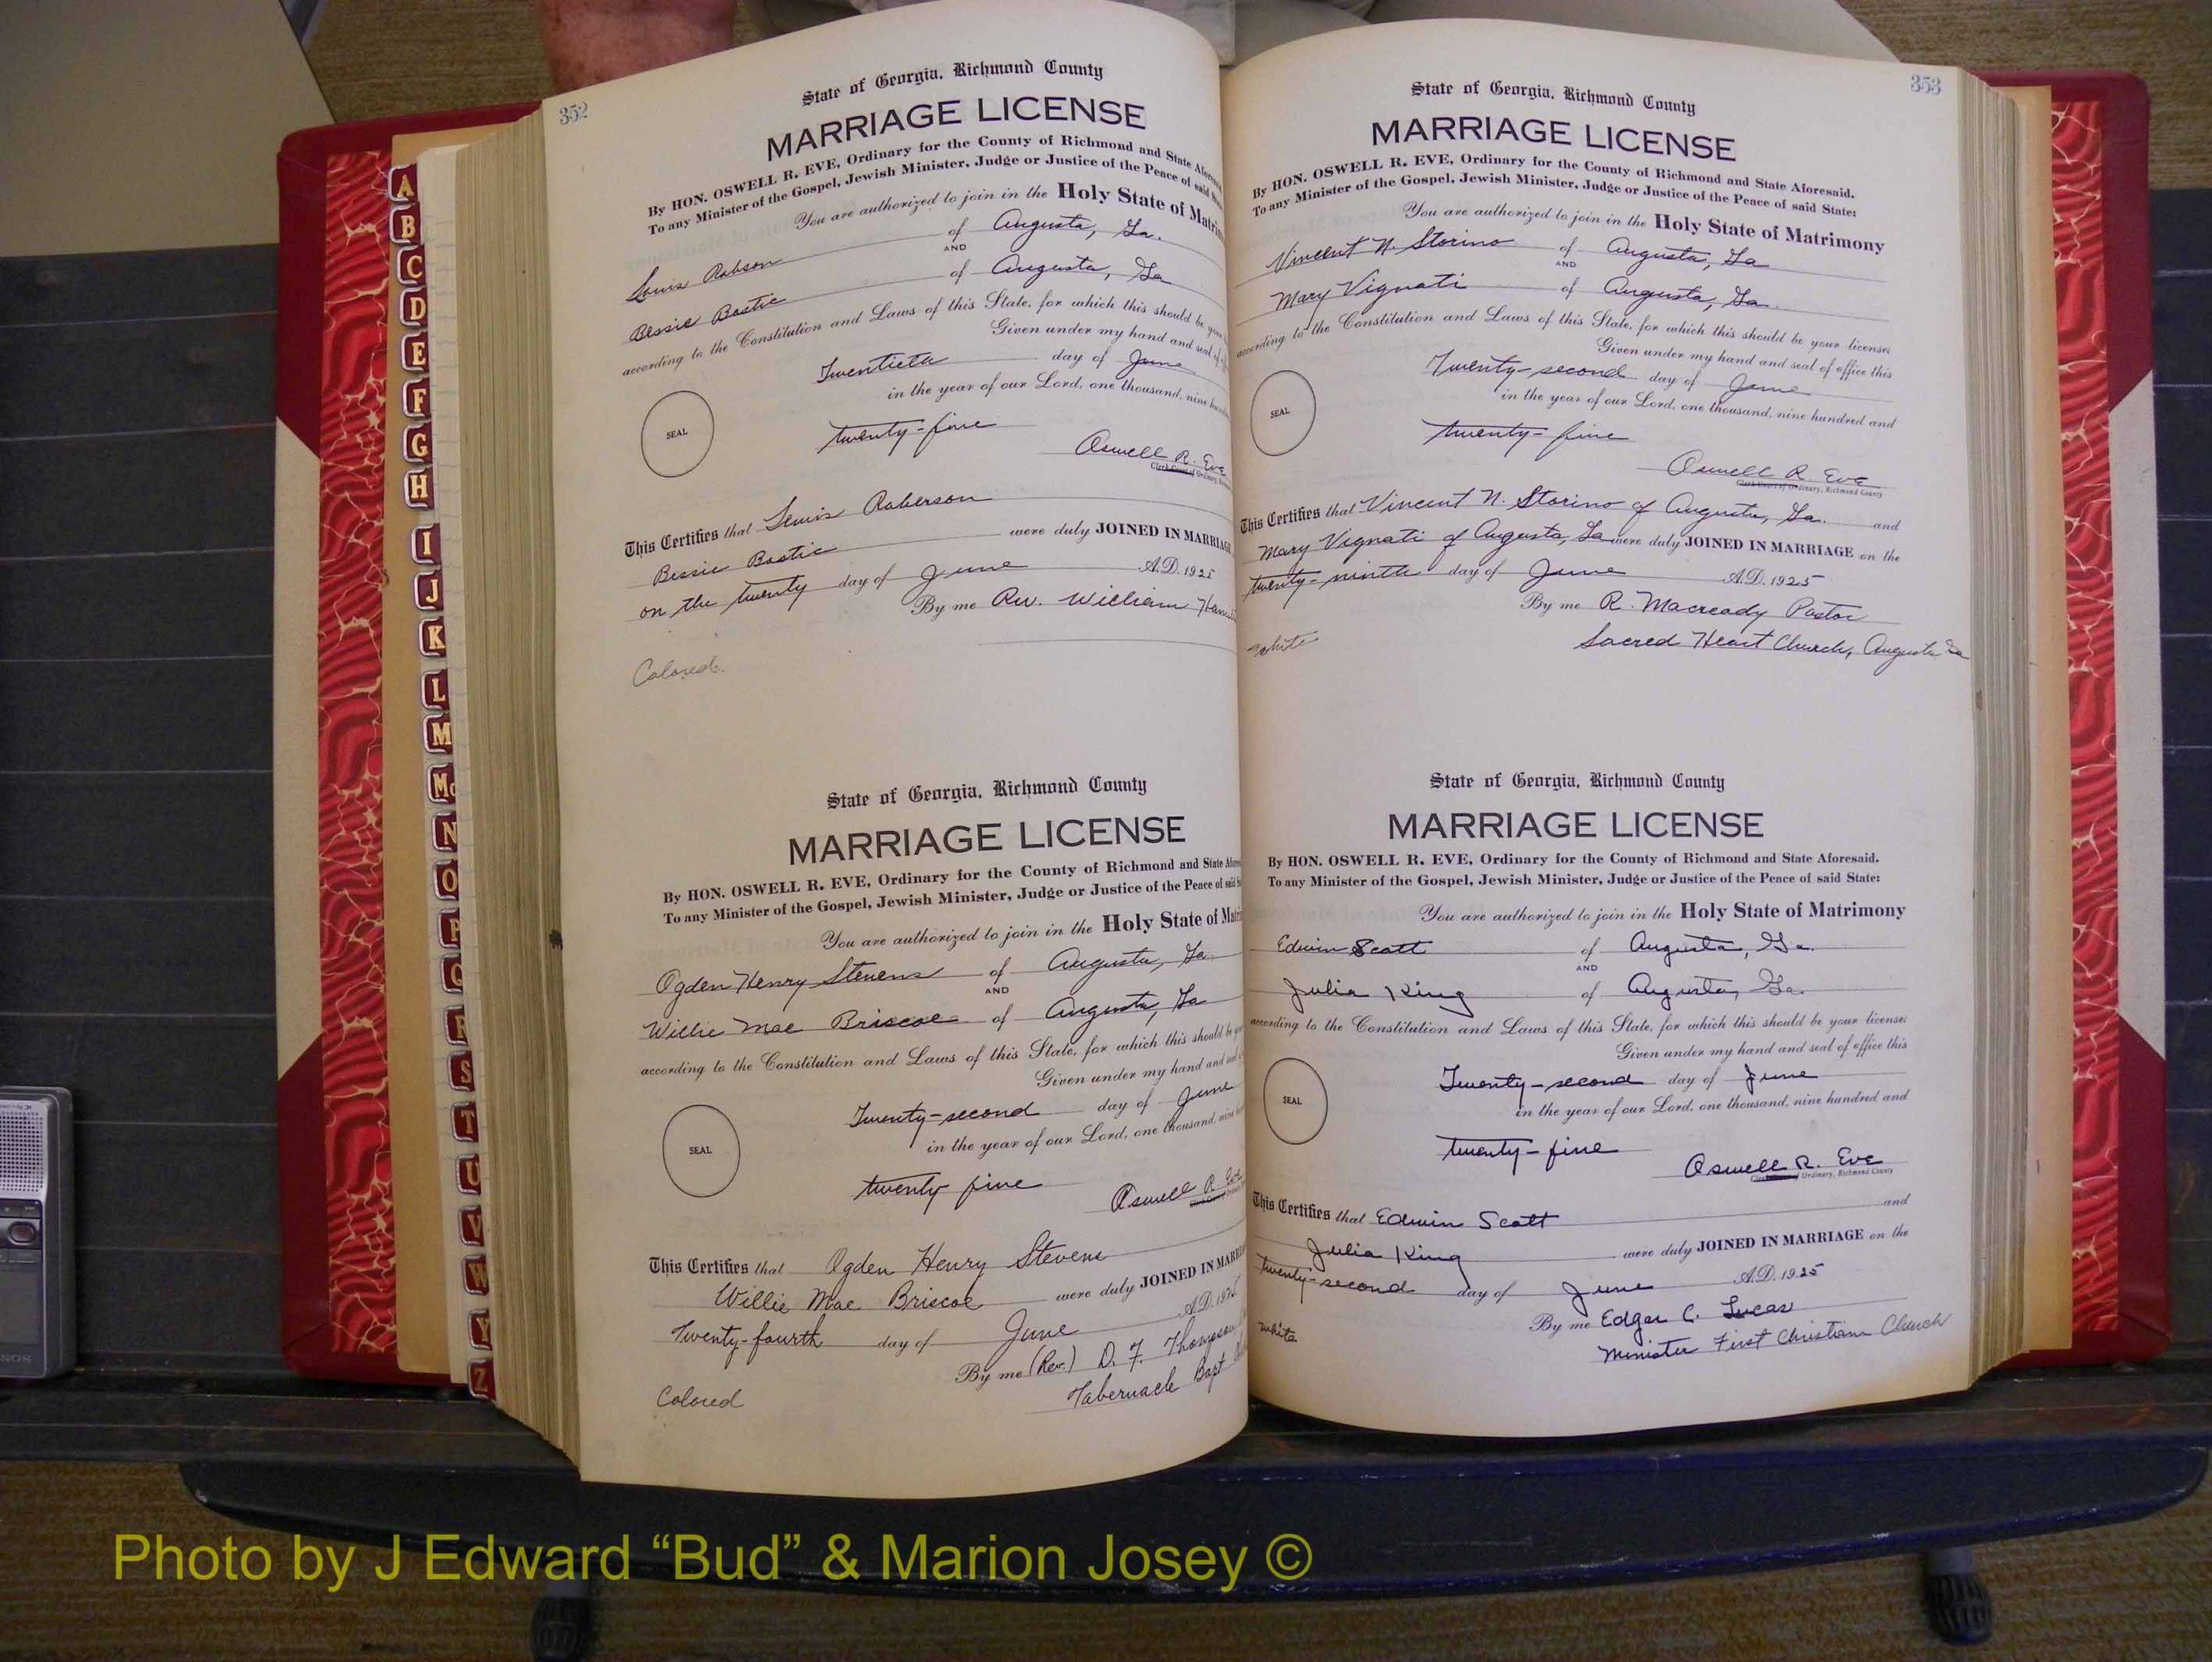 352
State of Georgia, Richmond County
MARRIAGE LICENSE
By HON. OSWELL R. EVE, Ordinary for the County of Richmond and State
To any Minister of the Gospel, Jewish Minister, Judge or Justice of the Peace of said
You are authorized to join in the Holy State of
Louis Robson of Augusta, Ga.
AND
Bessie Bostic of Augusta, Ga
according to the Constitution and Laws of this State, for which this should be
Given under my hand and seal of
Twentieth day of June
in the year of our Lord, one thousand, nine
SEAL
twenty-five
Oswell R. Eve
This Certifies that Lewis Roberson
Bessie Bostic were duly JOINED IN MARRIAGE
on the twenty day of June A.D. 1925
By me Rev. William
Colored.
State of Georgia, Richmond County
MARRIAGE LICENSE
By HON. OSWELL R. EVE, Ordinary for the County of Richmond and State
To any Minister of the Gospel, Jewish Minister, Judge or Justice of the Peace of said
You are authorized to join in the Holy State of
Ogden Henry Stevens of Augusta, Ga.
AND
Willie Mae Briscoe of Augusta, Ga
according to the Constitution and Laws of this State, for which this should be
Given under my hand and seal
Twenty-second day of June
in the year of our Lord, one thousand, nine
SEAL
twenty five
Oswell R. Eve
This Certifies that Ogden Henry Stevens
Willie Mae Briscoe were duly JOINED IN
Twenty-fourth day of June A.D. 1925
By me (Rev.) D. F. Thompson
Tabernacle Bapt
Colored
353
State of Georgia, Richmond County
MARRIAGE LICENSE
By HON. OSWELL R. EVE, Ordinary for the County of Richmond and State Aforesaid.
To any Minister of the Gospel, Jewish Minister, Judge or Justice of the Peace of said State:
You are authorized to join in the Holy State of Matrimony
Vincent N. Storino of Augusta, Ga
AND
Mary Vignati of Augusta, Ga.
according to the Constitution and Laws of this State, for which this should be your license:
Given under my hand and seal of office this
Twenty-second day of June
in the year of our Lord, one thousand, nine hundred and
SEAL
twenty-five
Oswell R. Eve
Clerk Court of Ordinary, Richmond County
This Certifies that Vincent N. Storino of Augusta, Ga. and
Mary Vignati of Augusta, Ga were duly JOINED IN MARRIAGE on the
twenty-ninth day of June A.D. 1925
By me R. Macready Pastor
Sacred Heart Church, Augusta Ga
White
State of Georgia, Richmond County
MARRIAGE LICENSE
By HON. OSWELL R. EVE, Ordinary for the County of Richmond and State Aforesaid.
To any Minister of the Gospel, Jewish Minister, Judge or Justice of the Peace of said State:
You are authorized to join in the Holy State of Matrimony
Edwin Scott of Augusta, Ga.
AND
Julia King of Augusta, Ga.
according to the Constitution and Laws of this State, for which this should be your license:
Given under my hand and seal of office this
Twenty-second day of June
in the year of our Lord, one thousand, nine hundred and
SEAL
twenty-five
Oswell R. Eve
Ordinary, Richmond County
This Certifies that Edwin Scott and
Julia King were duly JOINED IN MARRIAGE on the
twenty-second day of June A.D. 1925
By me Edgar C. Lucas
Minister First Christian Church
White
A
B
C
D
E
F
G
H
I
J
K
L
M
Mc
N
O
P
Q
R
S
T
U
V
W
Y
Z
Photo by J Edward “Bud” & Marion Josey ©